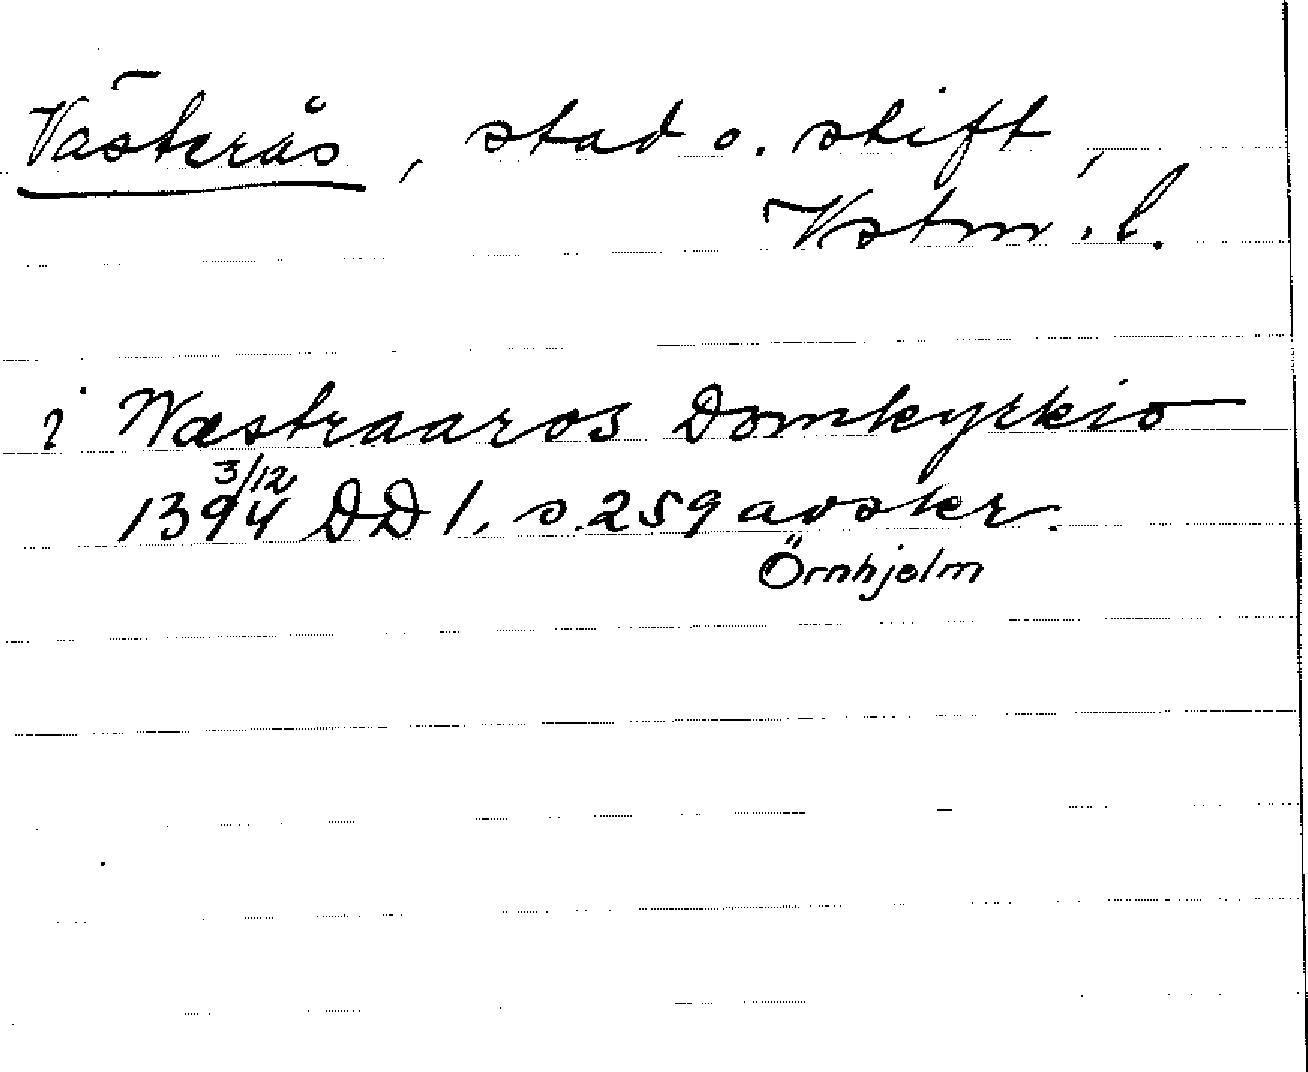 Västerås, stad o. stift,
Vstm. l.
i Wæstraaros Domkyrkio
1394 3/12 DD 1, s. 259 avskr.
Örnhjelm